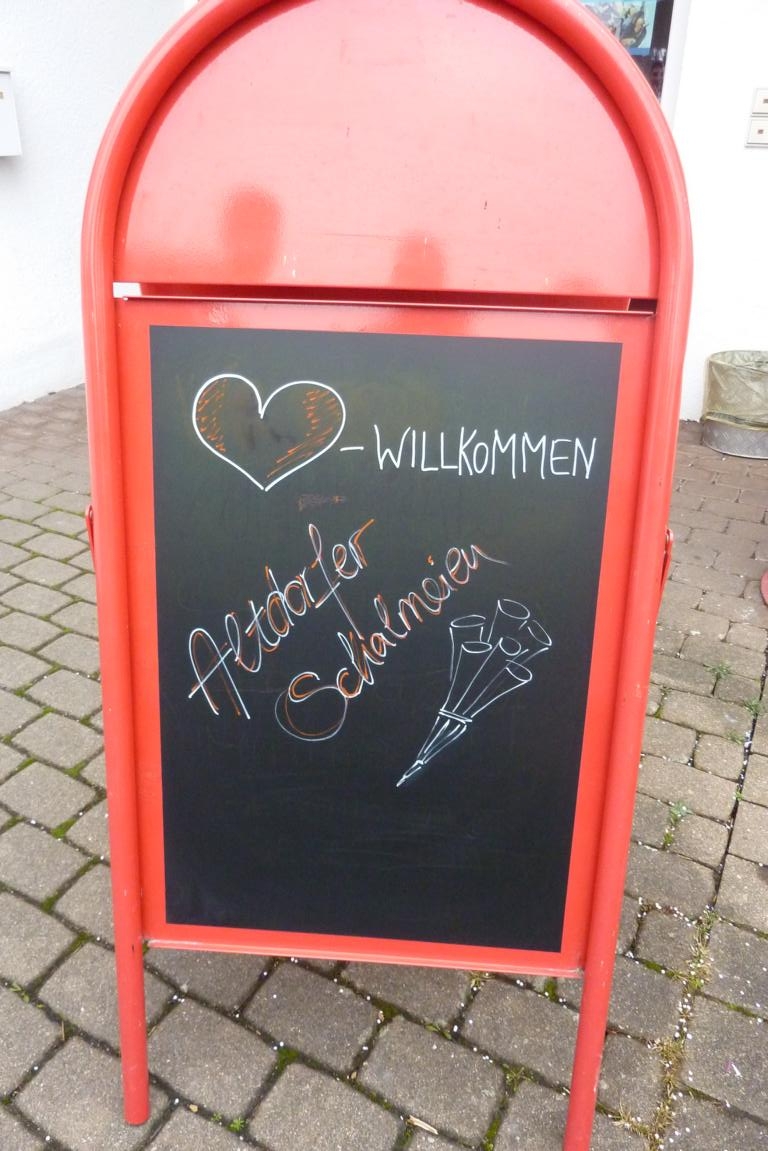 - WILLKOMMEN
Altdorfer
Schalmeien